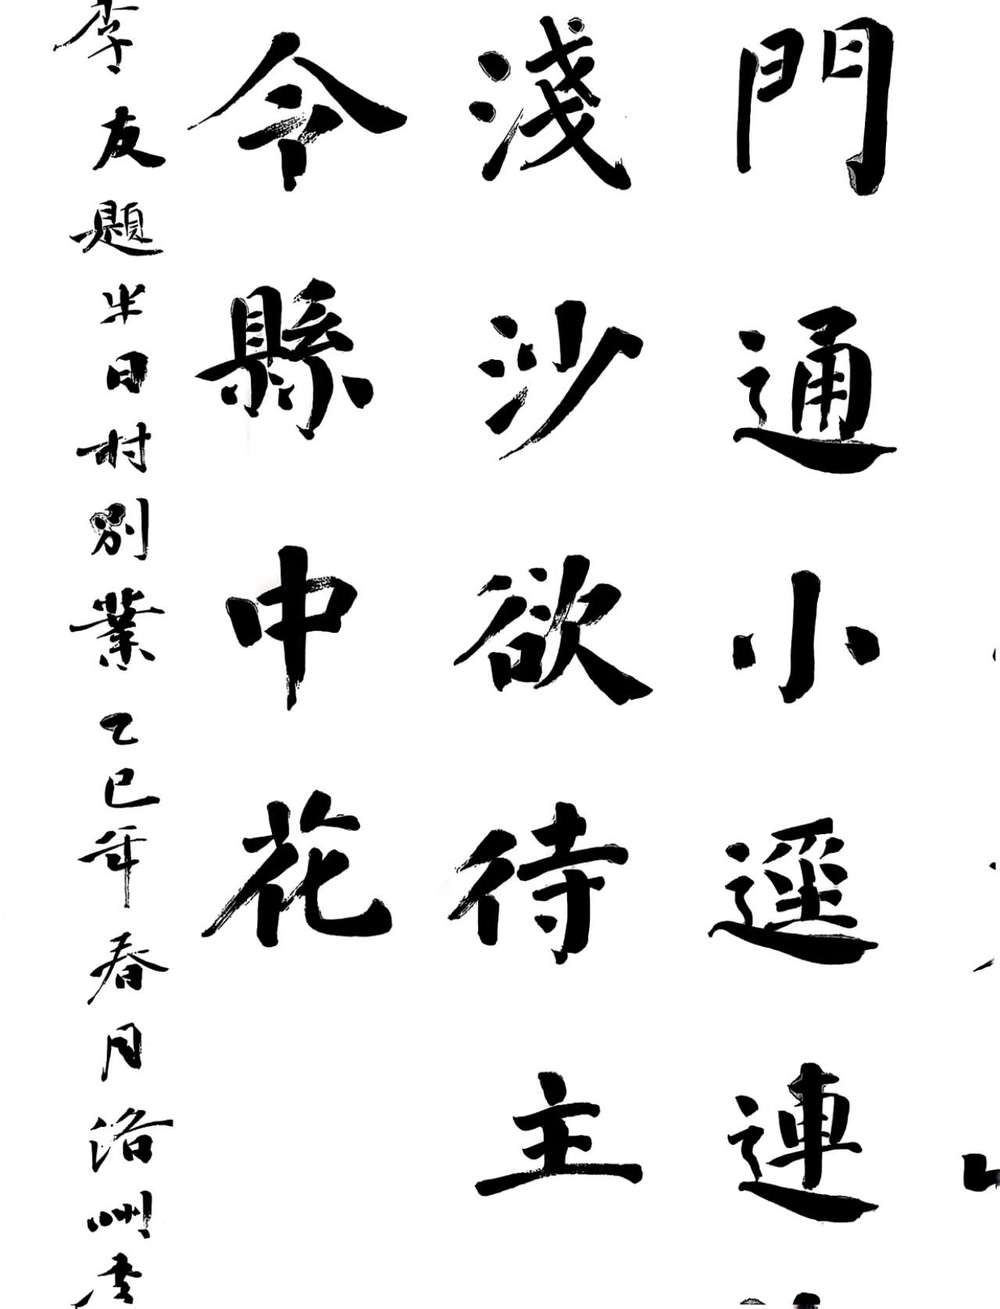 門通小逕連
淺沙欲待主
令縣中花
李友題半日村別業乙巳年春月洛州李